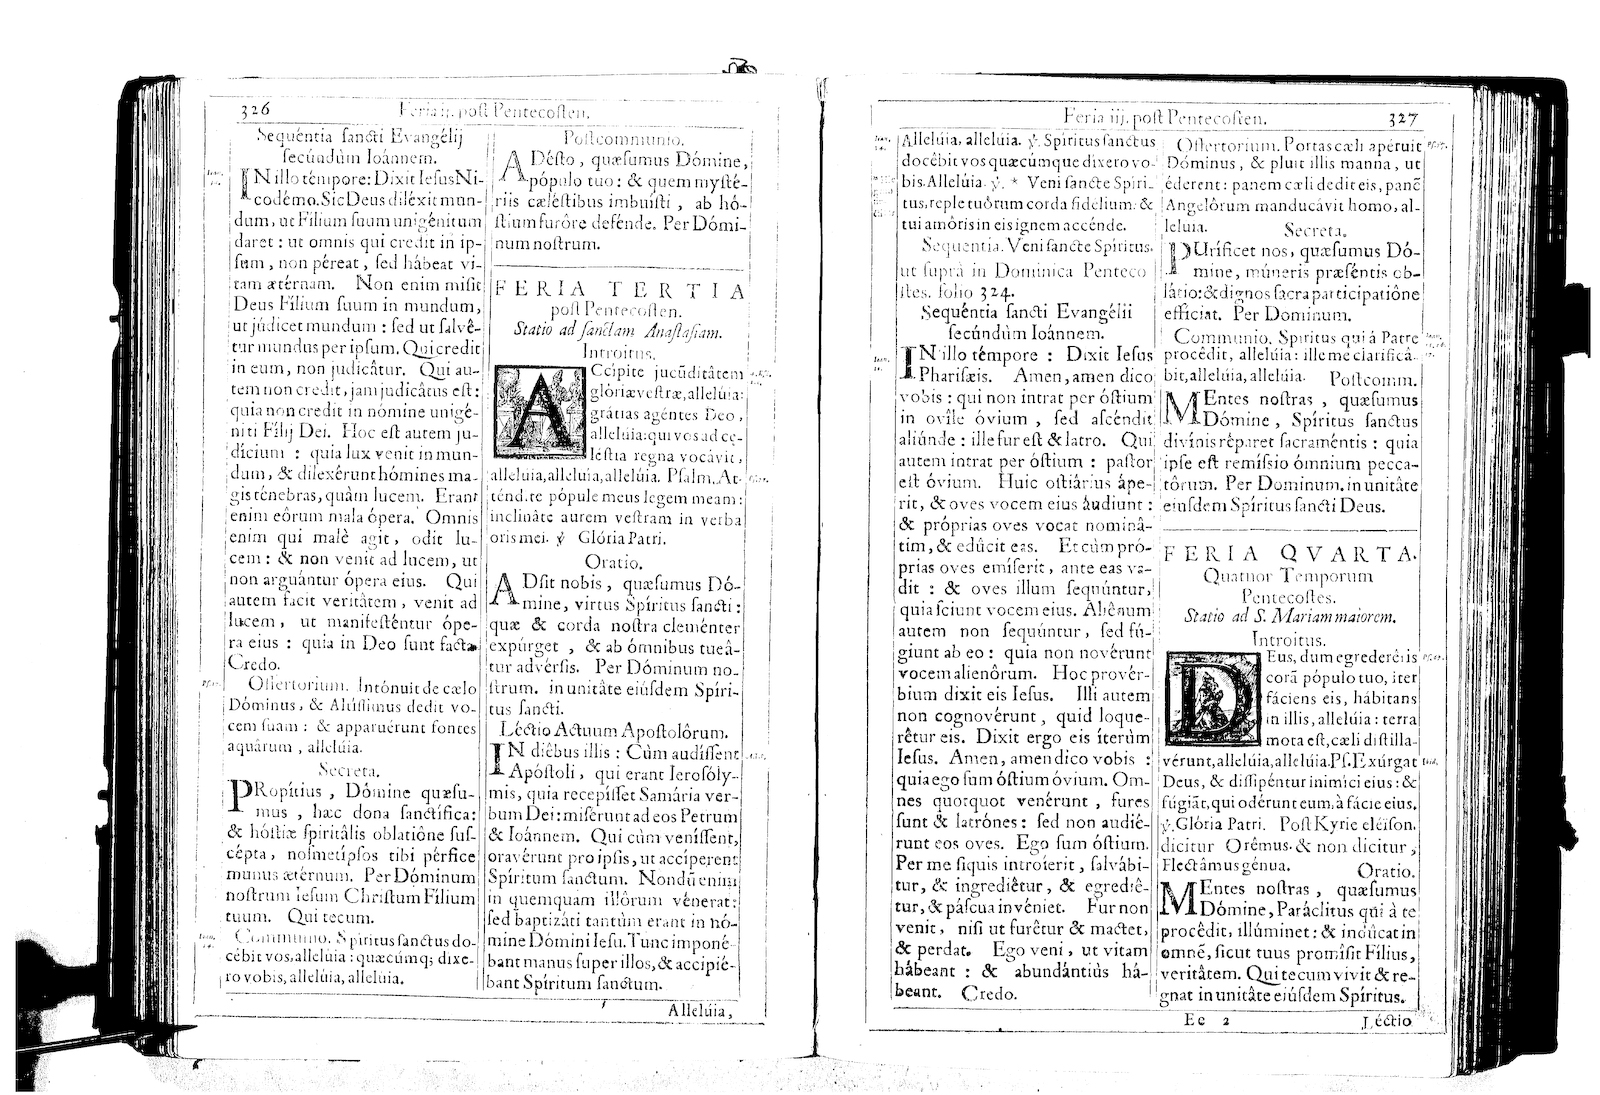 326
Feria ij. poſt Pentecoſten.
Sequéntia ſancti Evangélij
ſecúndùm Ioánnem.
IN illo témpore: Dixit Ieſus Ni-
codémo. Sic Deus diléxit mun-
dum, ut Filium ſuum unigénitum
daret: ut omnis qui credit in ip-
ſum, non péreat, ſed hábeat vi-
tam ætérnam. Non enim miſit
Deus Fílium ſuum in mundum,
ut júdicet mundum: ſed ut ſalvê-
tur mundus per ipſum. Qui credit
in eum, non judicâtur. Qui au-
tem non credit, jam judicâtus eſt:
quia non credit in nómine unigé-
niti Fílij Dei. Hoc eſt autem ju-
dícium: quia lux venit in mun-
dum, & dilexérunt hómines ma-
gis ténebras, quàm lucem. Erant
enim eôrum mala ópera. Omnis
enim qui malè agit, odit lu-
cem: & non venit ad lucem, ut
non arguántur ópera eius. Qui
autem facit veritâtem, venit ad
lucem, ut manifeſténtur ópe-
ra eius: quia in Deo ſunt facta.
Credo.
Offertorium. Intónuit de cælo
Dóminus, & Altíſſimus dedit vo-
cem ſuam: & apparuérunt fontes
aquárum, alleluia.
Secreta.
PRopítius, Dómine quæſu-
mus, hæc dona ſanctífica:
& hóſtiæ ſpiritâlis oblatiône ſuſ-
cépta, noſmetípſos tibi pérfice
munus ætérnum. Per Dóminum
noſtrum Ieſum Chriſtum Fílium
tuum. Qui tecum.
Communio. Spíritus ſanctus do-
cébit vos, alleluia: quæcúmq; dixe-
ro vobis, alleluia, alleluia.
Poſtcommunio.
ADéſto, quæſumus Dómine,
pópulo tuo: & quem myſté-
riis cæléſtibus imbuíſti, ab hó-
ſtium furôre defénde. Per Dómi-
num noſtrum.
FERIA TERTIA
poſt Pentecoſten.
Statio ad ſanctam Anaſtaſiam.
Introitus.
ACcipite jucũditâtem
glóriæ veſtræ, alleluia:
grátias agéntes Deo,
alleluia: qui vos ad cę-
léſtia regna vocâvit,
alleluia, alleluia, alleluia. Pſalm. At-
ténd.te pópule meus legem meam:
inclinâte aurem veſtram in verba
oris mei. ℣ Glória Patri.
Oratio.
ADſit nobis, quæſumus Dó-
mine, virtus Spíritus ſancti:
quæ & corda noſtra cleménter
expúrget, & ab ómnibus tueâ-
tur advérſis. Per Dóminum no-
ſtrum. in unitâte eiúſdem Spíri-
tus ſancti.
Léctio Actuum Apoſtolôrum.
IN diébus illis: Cùm audíſſent
Apóſtoli, qui erant Ieroſóly-
mis, quia recepíſſet Samária ver-
bum Dei: miſérunt ad eos Petrum
& Ioánnem. Qui cùm veníſſent,
oravérunt pro ipſis, ut acciperent
Spíritum ſanctum. Nondũ enim
in quemquam illôrum vénerat:
ſed baptizáti tantùm erant in nó-
mine Dómini Ieſu. Tunc imponé-
bant manus ſuper illos, & accipié-
bant Spíritum ſanctum.
Alleluia,
Feria iij. poſt Pentecoſten.
327
Alleluia, alleluia. ℣. Spíritus ſanctus
docêbit vos quæcúmque dixero vo-
bis. Alleluia. ℣. * Veni ſancte Spíri-
tus, reple tuôrum corda fidélium: &
tui amôris in eis ignem accénde.
Sequentia. Veni ſancte Spíritus.
ut ſuprà in Dominica Penteco
ſtes. folio 324.
Sequéntia ſancti Evangélii
ſecúndùm Ioánnem.
IN illo témpore: Dixit Ieſus
Phariſæis. Amen, amen dico
vobis: qui non intrat per óſtium
in ovîle óvium, ſed aſcéndit
aliúnde: ille fur eſt & latro. Qui
autem intrat per óſtium: paſtor
eſt óvium. Huic oſtiárius ápe-
rit, & oves vocem eius áudiunt:
& próprias oves vocat nominâ-
tim, & edûcit eas. Et cùm pró-
prias oves emíſerit, ante eas va-
dit: & oves illum ſequúntur,
quia ſciunt vocem eius. Aliénum
autem non ſequúntur, ſed fú-
giunt ab eo: quia non novérunt
vocem alienôrum. Hoc provér-
bium dixit eis Ieſus. Illi autem
non cognovérunt, quid loque-
rêtur eis. Dixit ergo eis íterùm
Ieſus. Amen, amen dico vobis:
quia ego ſum óſtium óvium. Om-
nes quotquot venérunt, fures
ſunt & latrónes: ſed non audié-
runt eos oves. Ego ſum óſtium.
Per me ſiquis introíerit, ſalvábi-
tur, & ingrediêtur, & egrediê-
tur, & páſcua invéniet. Fur non
venit, niſi ut furêtur & mactet,
& perdat. Ego veni, ut vitam
hábeant: & abundântiùs há-
beant. Credo.
Offertorium. Portas cæli apéruit
Dóminus, & pluit illis manna, ut
éderent: panem cæli dedit eis, panẽ
Angelôrum manducávit homo, al-
leluia.
Secreta.
PUríficet nos, quæſumus Dó-
mine, múneris præſéntis ob-
látio: & dignos ſacra participatiône
efficiat. Per Dominum.
Communio. Spíritus qui á Patre
procêdit, alleluia: ille me clarificâ-
bit, alleluia, alleluia. Poſtcomm.
MEntes noſtras, quæſumus
Dómine, Spíritus ſanctus
divínis réparet ſacraméntis: quia
ipſe eſt remíſsio ómnium pecca-
tôrum. Per Dominum. in unitâte
eiuſdem Spíritus ſancti Deus.
FERIA QVARTA.
Quatuor Temporum
Pentecoſtes.
Statio ad S. Mariam maiorem.
Introitus.
DEus, dum egrederéris
corã pópulo tuo, iter
fáciens eis, hábitans
in illis, alleluia: terra
mota eſt, cæli diſtilla-
vérunt, alleluia, alleluia. Pſ. Exúrgat
Deus, & diſſipéntur inimíci eius: &
fúgiãt, qui odérunt eum, à fácie eius.
℣. Glória Patri. Poſt Kyrie eléiſon.
dicitur Orémus. & non dicitur,
Flectâmus génua.
Oratio.
MEntes noſtras, quæſumus
Dómine, Paráclitus qui à te
procêdit, illúminet: & indûcat in
omnẽ, ſicut tuus promíſit Fílius,
veritâtem. Qui tecum vivit & re-
gnat in unitâte eiúſdem Spíritus.
Ee 2
Léctio